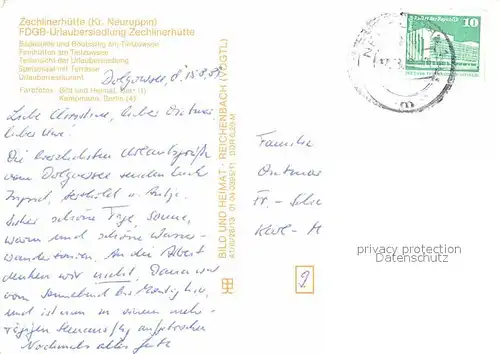 Zechlinerhütte (Kr. Neuruppin)
FDGB-Urlaubersiedlung Zechlinerhütte
Badestelle und Bootssteg am Tietzowsee
Ferienhütten am Tietzowsee
Teilansicht der Urlaubersiedlung
Speisesaal mit Terrasse
Urlauberrestaurant
Farbfotos: Bild und Heimat, (1)
Kampmann, Berlin (4)
Dolgowsee, d. 15.8.
Liebe Christine, lieber Ontmar,
lieber Uwe!
Die herzlichsten Urlaubsgrüße
vom Dolgowsee senden Euch
Ingrid, Berthold u. Antje.
Bisher schöne Tage, Sonne,
warm und schöne Wasser-
wanderrouten. An die Arbeit
denken wir nicht. Dann
vom Sonnabend bis Montag
und ist man zu einem mehr-
tägigen aufgebrochen
Nochmals alles Gute
BILD UND HEIMAT · REICHENBACH (VOGTL)
DDR 0,20 M
10
Familie
Ontmar
Fr.-
Karl-M
9
privacy protection
Datenschutz